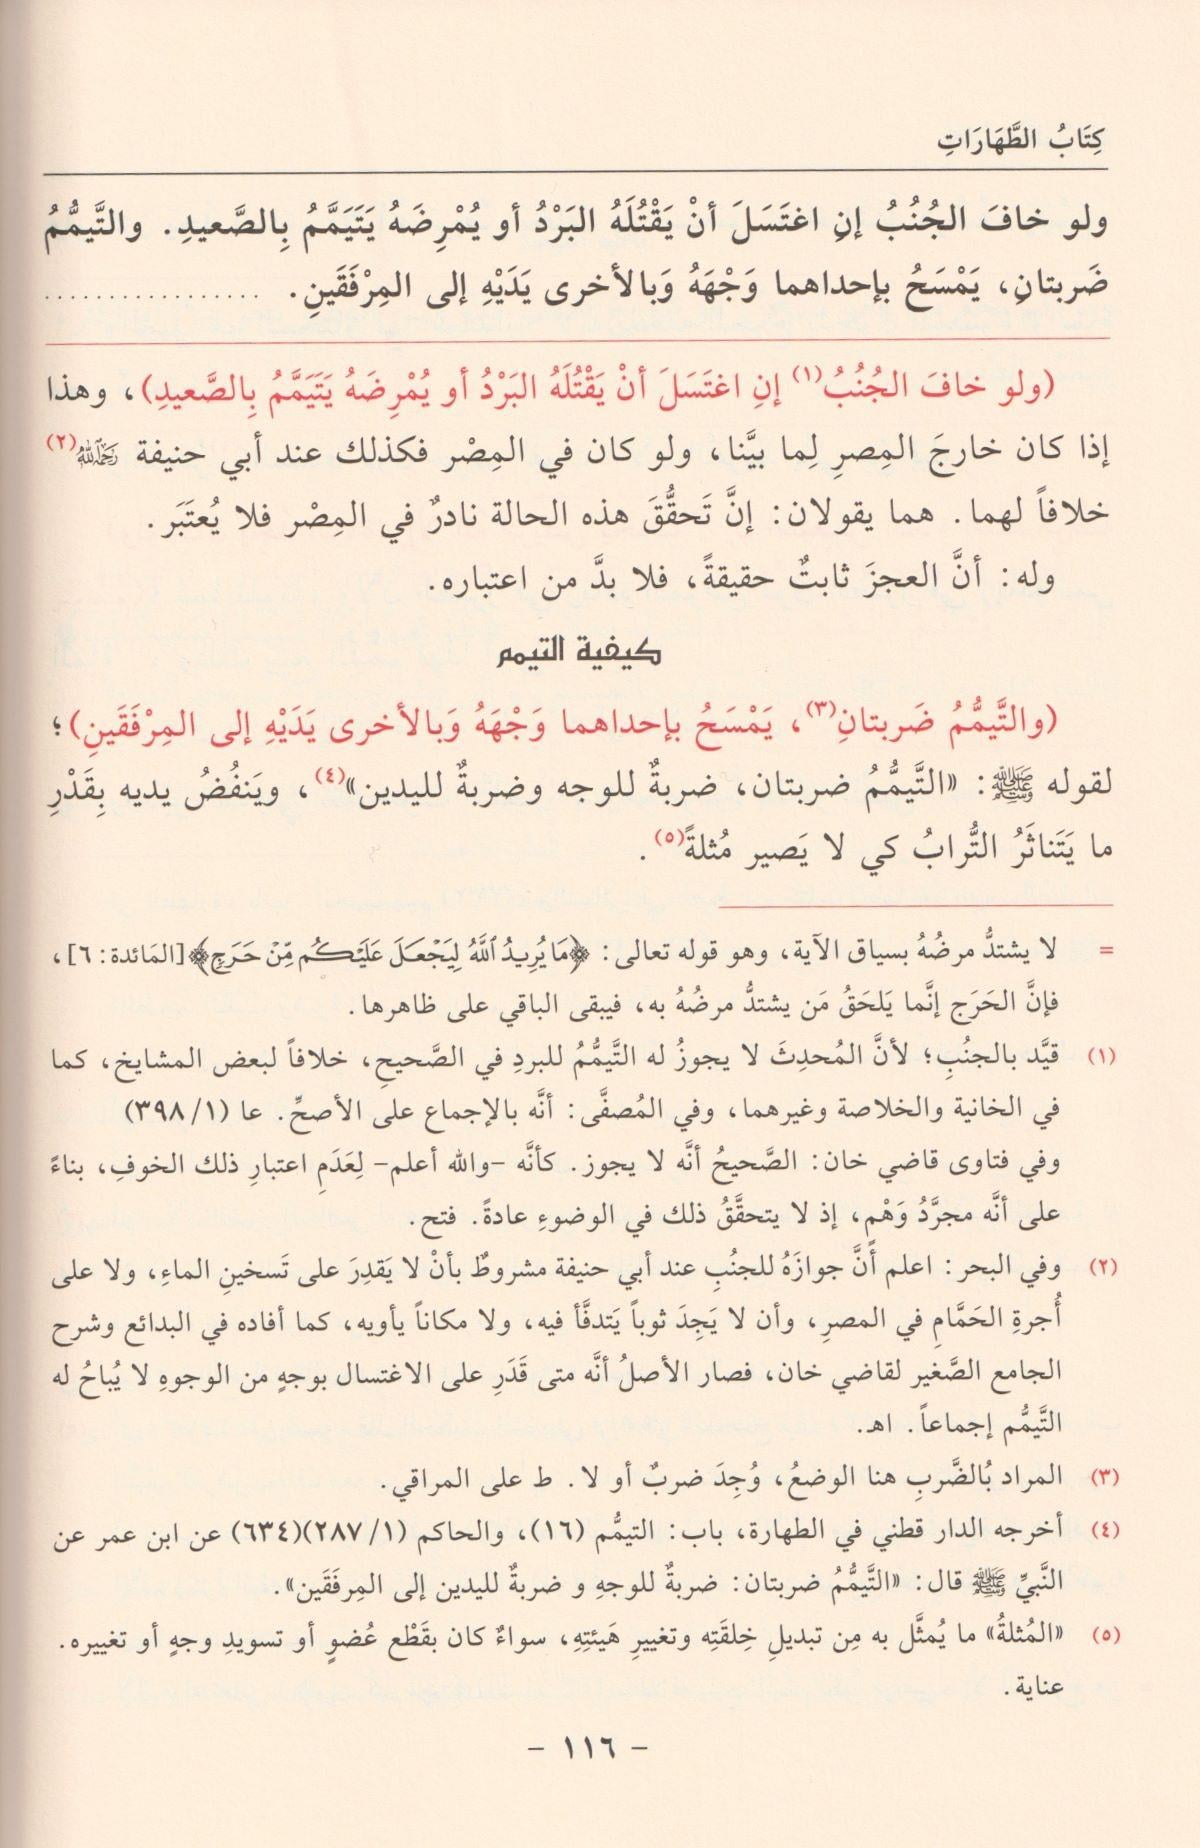 كِتَابُ الطَّهَارَاتِ
ولو خافَ الجُنُبُ إنِ اغتَسَلَ أنْ يَقْتُلَهُ البَرْدُ أو يُمْرِضَهُ يَتَيَمَّمُ بِالصَّعيدِ. والتَّيمُّمُ
ضَربتانِ، يَمْسَحُ بإحداهما وَجْهَهُ وَبالأخرى يَدَيْهِ إلى المِرْفَقَينِ. .................
(ولو خافَ الجُنُبُ(١) إنِ اغتَسَلَ أنْ يَقْتُلَهُ البَرْدُ أو يُمْرِضَهُ يَتَيَمَّمُ بِالصَّعيدِ)، وهذا
إذا كان خارجَ المِصرِ لِما بيَّنا، ولو كان في المِصْر فكذلك عند أبي حنيفة رَحِمَهُ اللهُ(٢)
خلافاً لهما. هما يقولان: إنَّ تَحقُّقَ هذه الحالة نادرٌ في المِصْر فلا يُعتَبَر.
وله: أنَّ العجزَ ثابتٌ حقيقةً، فلا بدَّ من اعتباره.
كيفية التيمم
(والتَّيمُّمُ ضَربتانِ(٣)، يَمْسَحُ بإحداهما وَجْهَهُ وَبالأخرى يَدَيْهِ إلى المِرْفَقَينِ)؛
لقوله ﷺ: «التَّيمُّمُ ضربتان، ضربةٌ للوجه وضربةٌ لليدين»(٤)، ويَنفُضُ يديه بِقَدْرِ
ما يَتَناثَرُ التُّرابُ كي لا يَصير مُثلةً(٥).
= لا يشتدُّ مرضُهُ بسياق الآية، وهو قوله تعالى: ﴿مَا يُرِيدُ ٱللَّهُ لِيَجْعَلَ عَلَيْكُم مِّنْ حَرَجٍ﴾ [المَائدة: ٦]،
فإنَّ الحَرَج إنَّما يَلحَقُ مَن يشتدُّ مرضُهُ به، فيبقى الباقي على ظاهرها.
(١) قيَّد بالجنُبِ؛ لأنَّ المُحدِثَ لا يجوزُ له التَّيمُّمُ للبردِ في الصَّحيحِ، خلافاً لبعض المشايخ، كما
في الخانية والخلاصة وغيرهما، وفي المُصفَّى: أنَّه بالإجماع على الأصحِّ. عا (١/ ٣٩٨)
وفي فتاوى قاضي خان: الصَّحيحُ أنَّه لا يجوز. كأنَّه -والله أعلم- لِعَدَمِ اعتبارِ ذلك الخوفِ، بناءً
على أنَّه مجرَّدُ وَهْمٍ، إذ لا يتحقَّقُ ذلك في الوضوءِ عادةً. فتح.
(٢) وفي البحر: اعلم أنَّ جوازَهُ للجنُبِ عند أبي حنيفة مشروطٌ بأنْ لا يَقدِرَ على تَسخينِ الماءِ، ولا على
أُجرةِ الحَمَّامِ في المصرِ، وأن لا يَجِدَ ثوباً يَتدفَّأ فيه، ولا مكاناً يأويه، كما أفاده في البدائع وشرح
الجامع الصَّغير لقاضي خان، فصار الأصلُ أنَّه متى قَدَرِ على الاغتسال بوجهٍ من الوجوهِ لا يُباحُ له
التَّيمُّم إجماعاً. اهـ.
(٣) المراد بُالضَّربِ هنا الوضعُ، وُجِدَ ضربٌ أو لا. ط على المراقي.
(٤) أخرجه الدار قطني في الطهارة، باب: التيمُّم (١٦)، والحاكم (١/ ٢٨٧)(٦٣٤) عن ابن عمر عن
النَّبيِّ ﷺ قال: «التَّيمُّمُ ضربتان: ضربةٌ للوجهِ و ضربةٌ لليدين إلى المِرفَقَين».
(٥) «المُثلةُ» ما يُمثَّل به مِن تبديلِ خِلقَتِه وتغييرِ هَيئتِهِ، سواءٌ كان بقَطْع عُضوٍ أو تسويدِ وجهٍ أو تغييره.
عناية.
- ١١٦ -